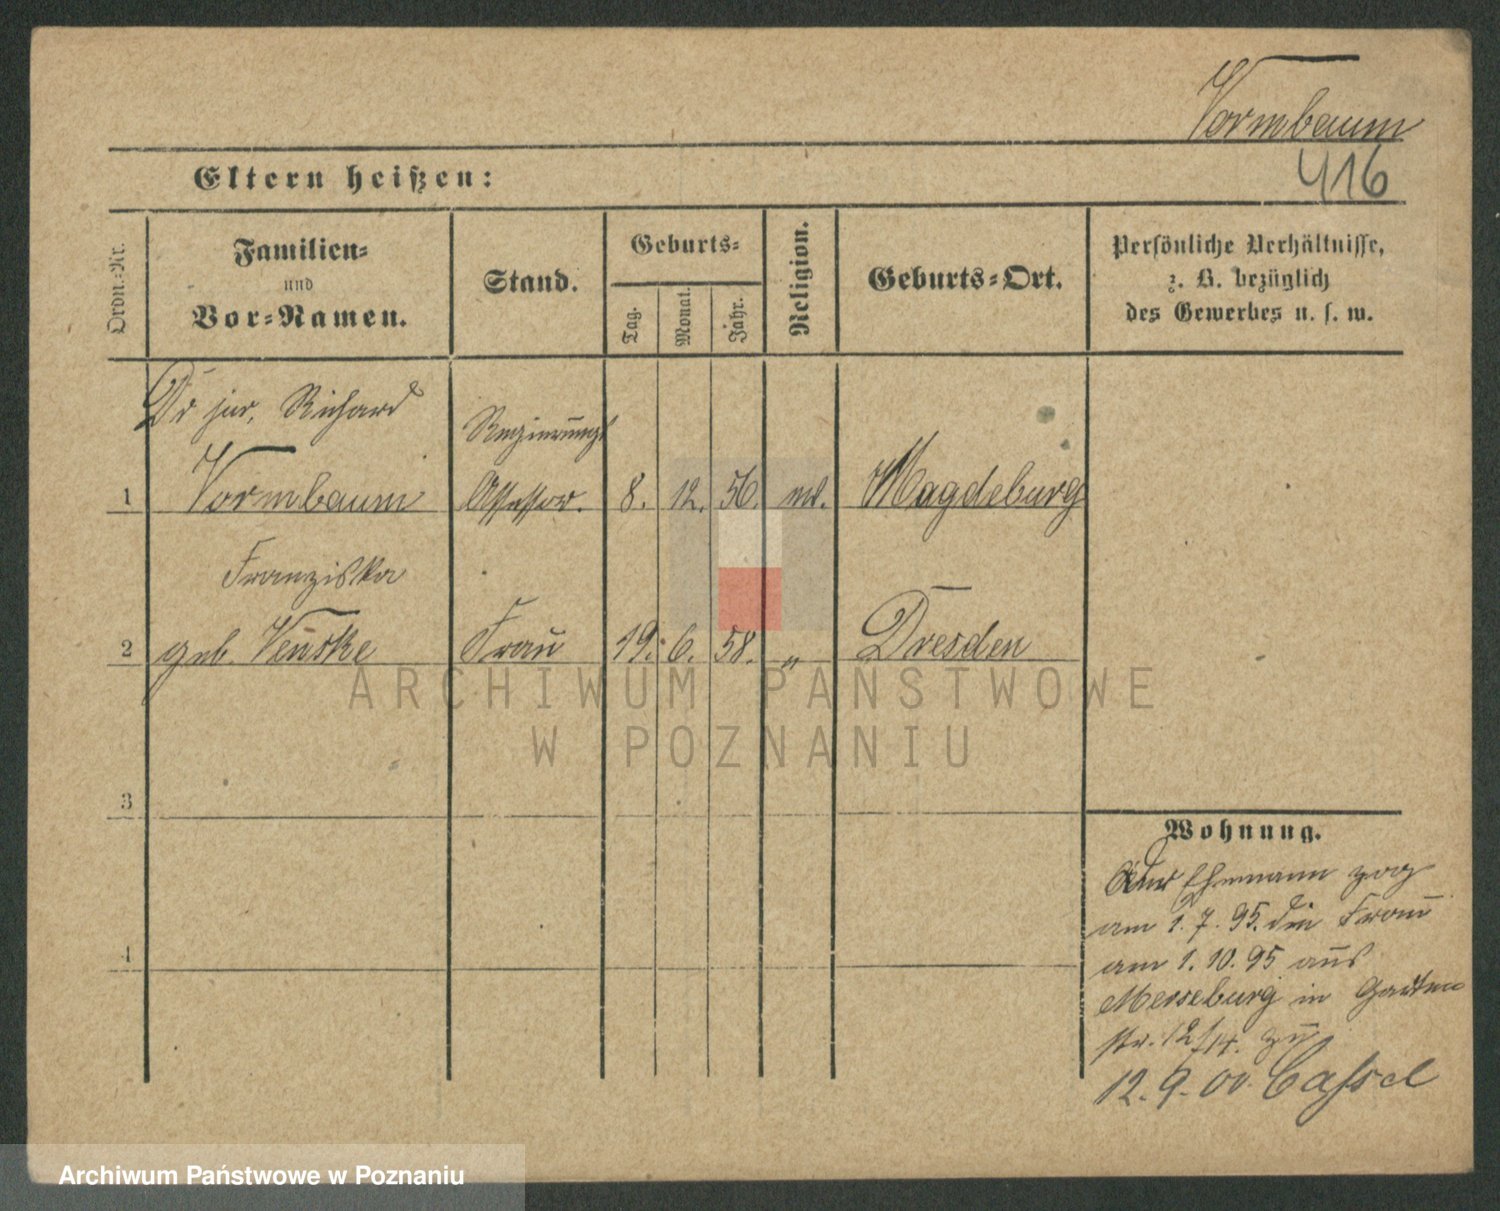 Vormbaum
416
Eltern heißen:
Ordn.-Nr.
Familien-
und
Vor-Namen.
Stand.
Geburts-
Tag.
Monat.
Jahr.
Religion.
Geburts-Ort.
Persönliche Verhältnisse,
z. B. bezüglich
des Gewerbes u. s. w.
Dr jur. Richard
Regierungs
1 Vormbaum Assessor. 8. 12. 56. ev. Magdeburg
Franziska
2 geb. Venske Frau 19. 6. 58. " Dresden
3
4
Wohnung.
Ehemann zog
am 1. 7. 95. die Frau
am 1. 10. 95 aus
Merseburg in Garten
str. 12/14. zu
12. 9. 00. Cassel
ARCHIWUM PAŃSTWOWE
W POZNANIU
Archiwum Państwowe w Poznaniu